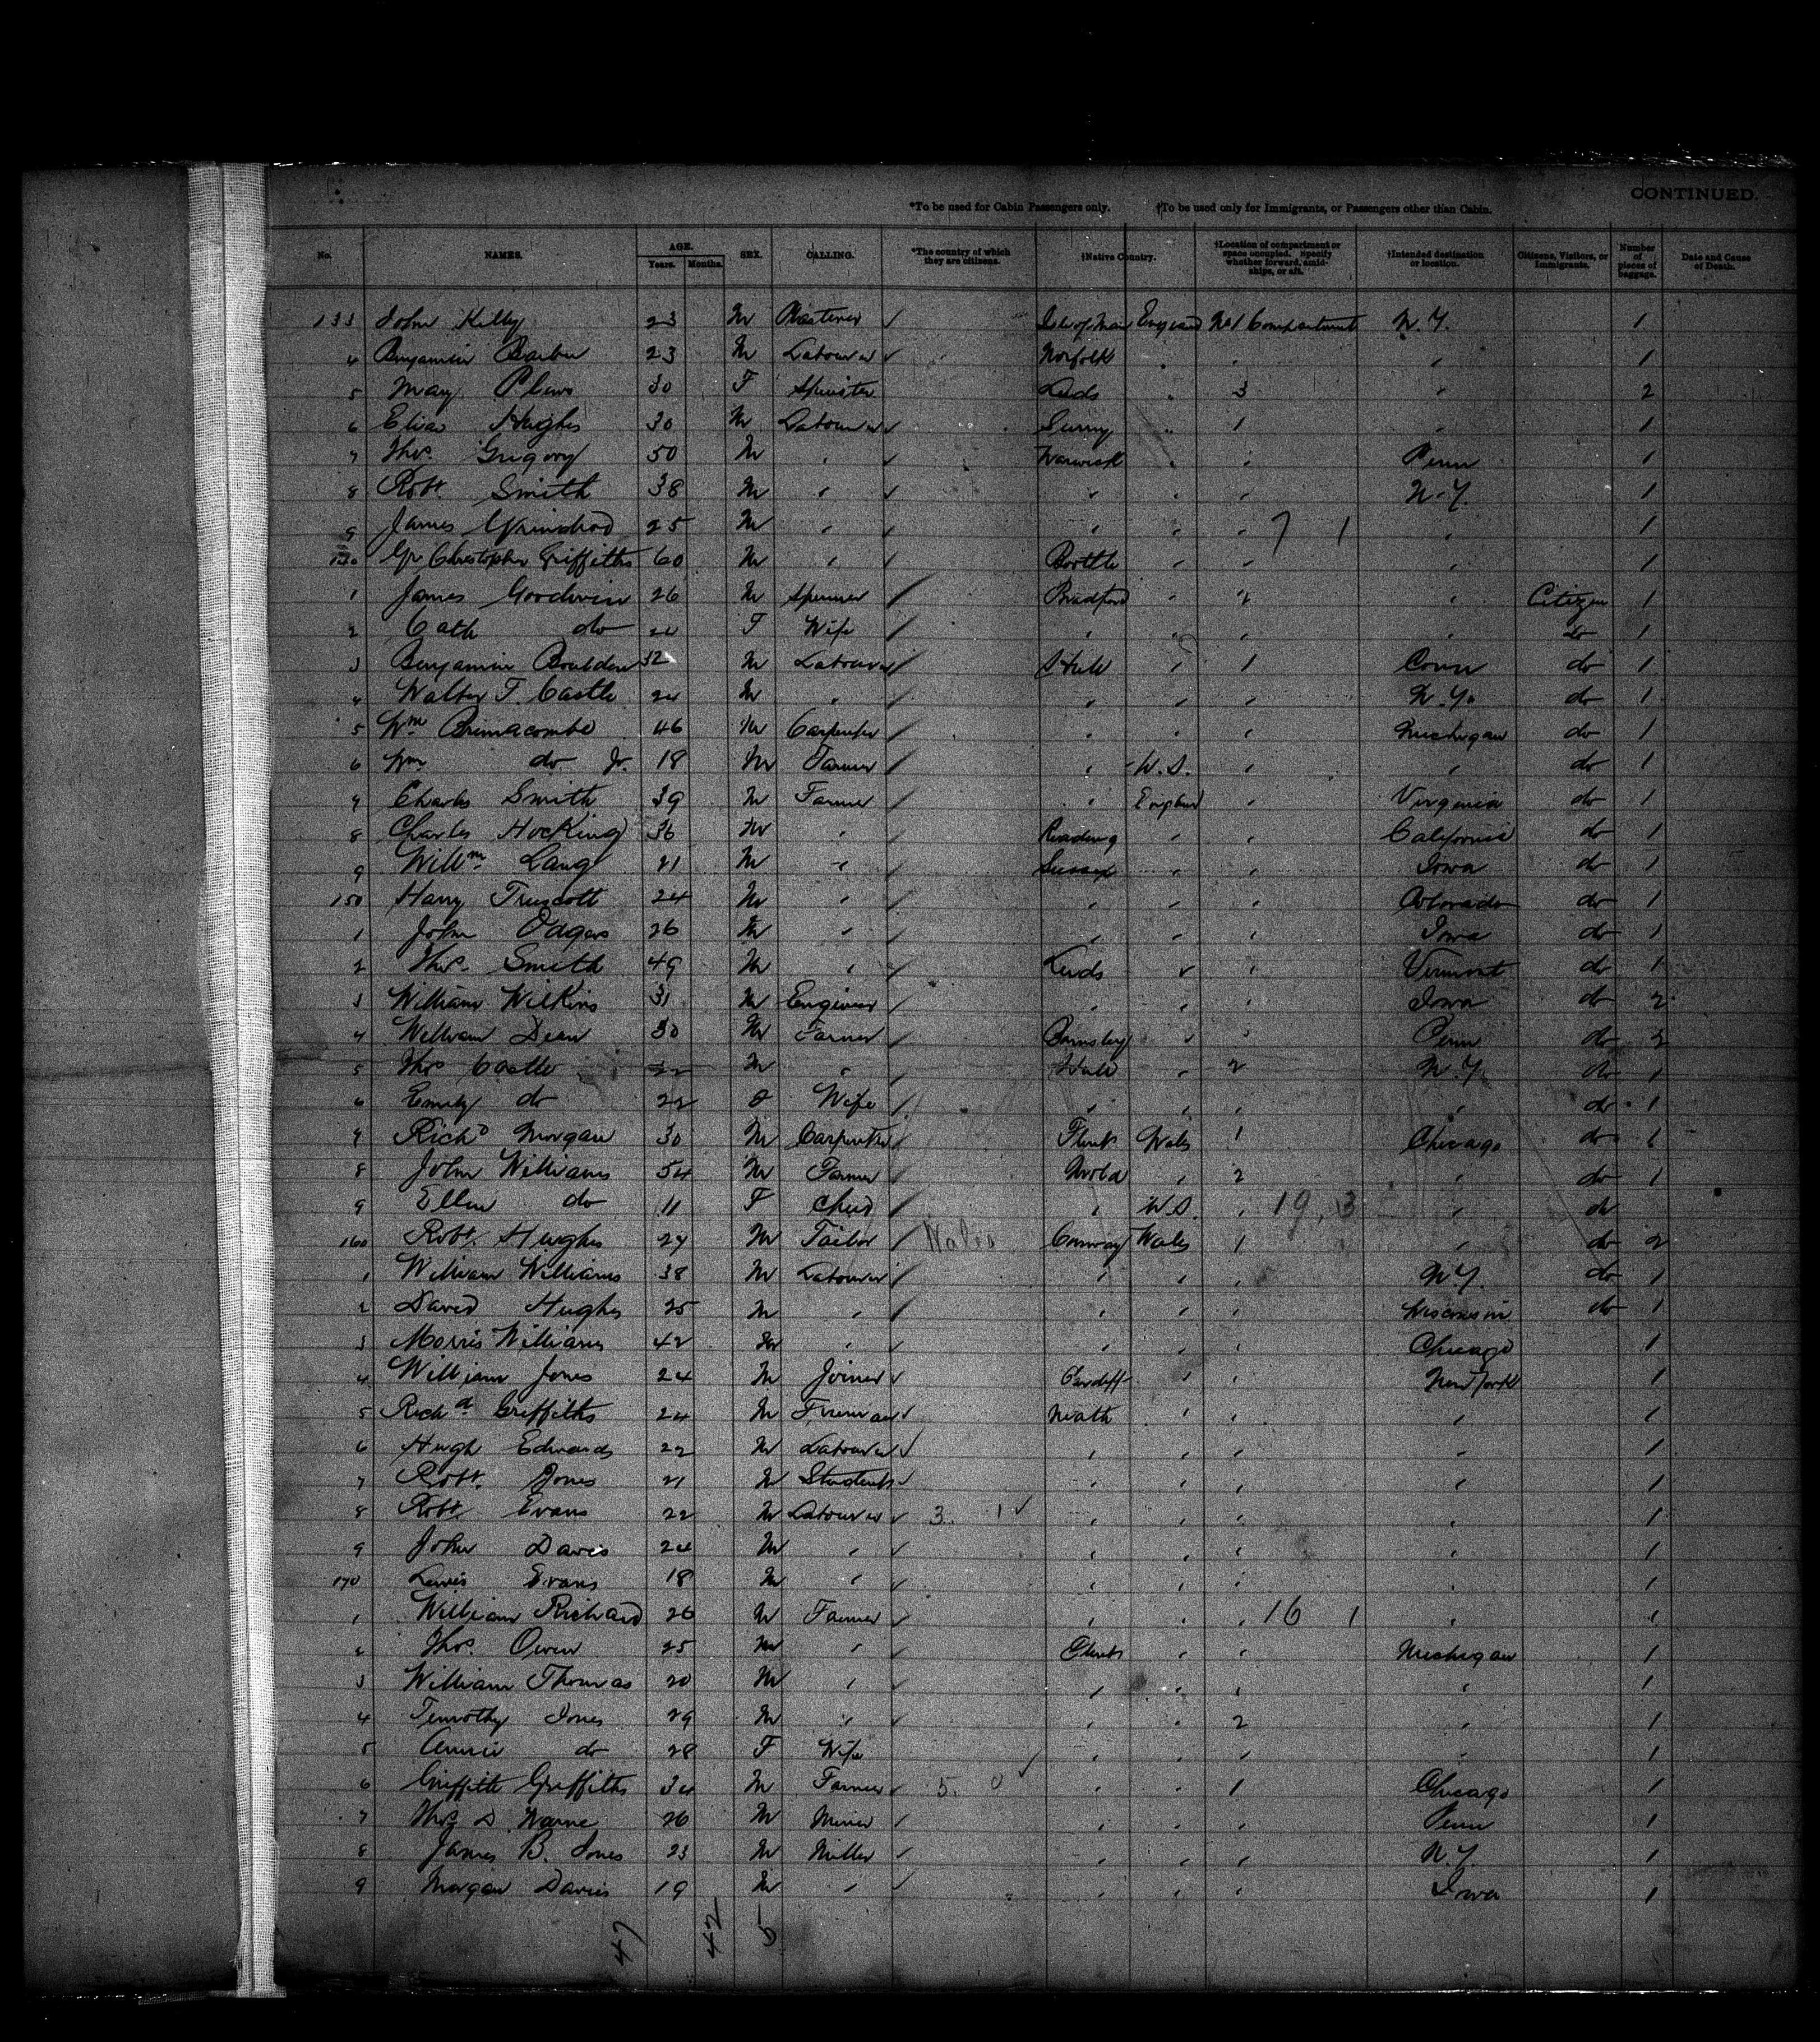 CONTINUED.
*To be used for Cabin Passengers only. †To be used only for Immigrants, or Passengers other than Cabin.
No. NAMES. AGE. Years. Months. SEX. CALLING. *The country of which they are citizens. †Native Country. †Location of compartment or space occupied. Specify whether forward, amidships, or aft. †Intended destination or location. Citizens, Visitors, or Immigrants. Number of pieces of baggage. Date and Cause of Death.
133 John Kelly 23 M Plasterer Isle of Man England No 1 Compartment N.Y. 1
4 Benjamin Barber 23 M Labourer Norfolk " " " 1
5 Mary 30 F Spinster Leeds " 3 " 2
6 Elias Hughes 30 M Labourer Surrey " 1 " 1
7 Thos. Gregory 50 M " Warwick " " Penn 1
8 Robt. Smith 38 M " " " " N.Y. 1
9 James Grindrod 25 M " " " " 7 1 " 1
140 Christopher Griffiths 60 M " Bootle " " " 1
1 James Goodwin 26 M Spinner Bradford " 2 " Citizen 1
2 Cath do 24 F Wife " " " " do 1
3 Benjamin 32 M Labourer Hull " 1 Conn do 1
4 Walter T. Castle 24 M " " " " N.Y. do 1
5 Wm Brimacombe 46 M Carpenter " " " Michigan do 1
6 Wm do Jr. 18 M Farmer " U.S. " " do 1
7 Charles Smith 39 M Farmer " England " Virginia do 1
8 Charles Hocking 36 M " Reading " " California do 1
9 Willm Lang 21 M " Sussex " " Iowa do 1
150 Harry Truscott 24 M " " " " Colorado do 1
1 John Odgers 26 M " " " " Iowa do 1
2 Thos. Smith 49 M " Leeds " " Vermont do 1
3 William Wilkins 31 M Engineer " " " Iowa do 2
4 William Dean 30 M Farmer Barnsley " " Penn do 2
5 Thos Castle 22 M " Hull " 2 N.Y. do 1
6 Emily do 22 Wife " " " " do 1
7 Richd Morgan 30 M Carpenter Flint Wales 1 Chicago do 1
8 John Williams 54 M Farmer Mold " 2 " do 1
9 Ellen do 11 F Child " U.S. " 19, 3 " do
160 Robt. Hughes 27 M Tailor Wales Conway Wales 1 " do 2
1 William Williams 38 M Labourer " " " N.Y. do 1
2 David Hughes 25 M " " " " Wisconsin do 1
3 Morris Williams 42 M " " " " Chicago 1
4 William Jones 24 M Joiner Cardiff " " New York 1
5 Richd Griffiths 24 M Fireman Neath " " " 1
6 Hugh Edwards 22 M Labourer " " " " 1
7 Robt. Jones 21 M Student " " " " 1
8 Robt. Evans 22 M Labourer 3. 1 " " " " 1
9 John Davis 24 M " " " " " 1
170 Lewis Evans 18 M " " " " " 1
1 William Richard 26 M Farmer " " " 16 1 " 1
2 Thos. Owen 25 M " Flint " " Michigan 1
3 William Thomas 20 M " " " " " 1
4 Timothy Jones 29 M " " " 2 " 1
5 Annie do 28 F Wife " " " " 1
6 Griffith Griffiths 34 M Farmer 5. 0 " " 1 Chicago 1
7 Thos D. Warne 26 M Miner " " " Penn 1
8 James B. Jones 23 M Miller " " " N.Y. 1
9 Morgan Davies 19 M " " " " Iowa 1
47 42 5